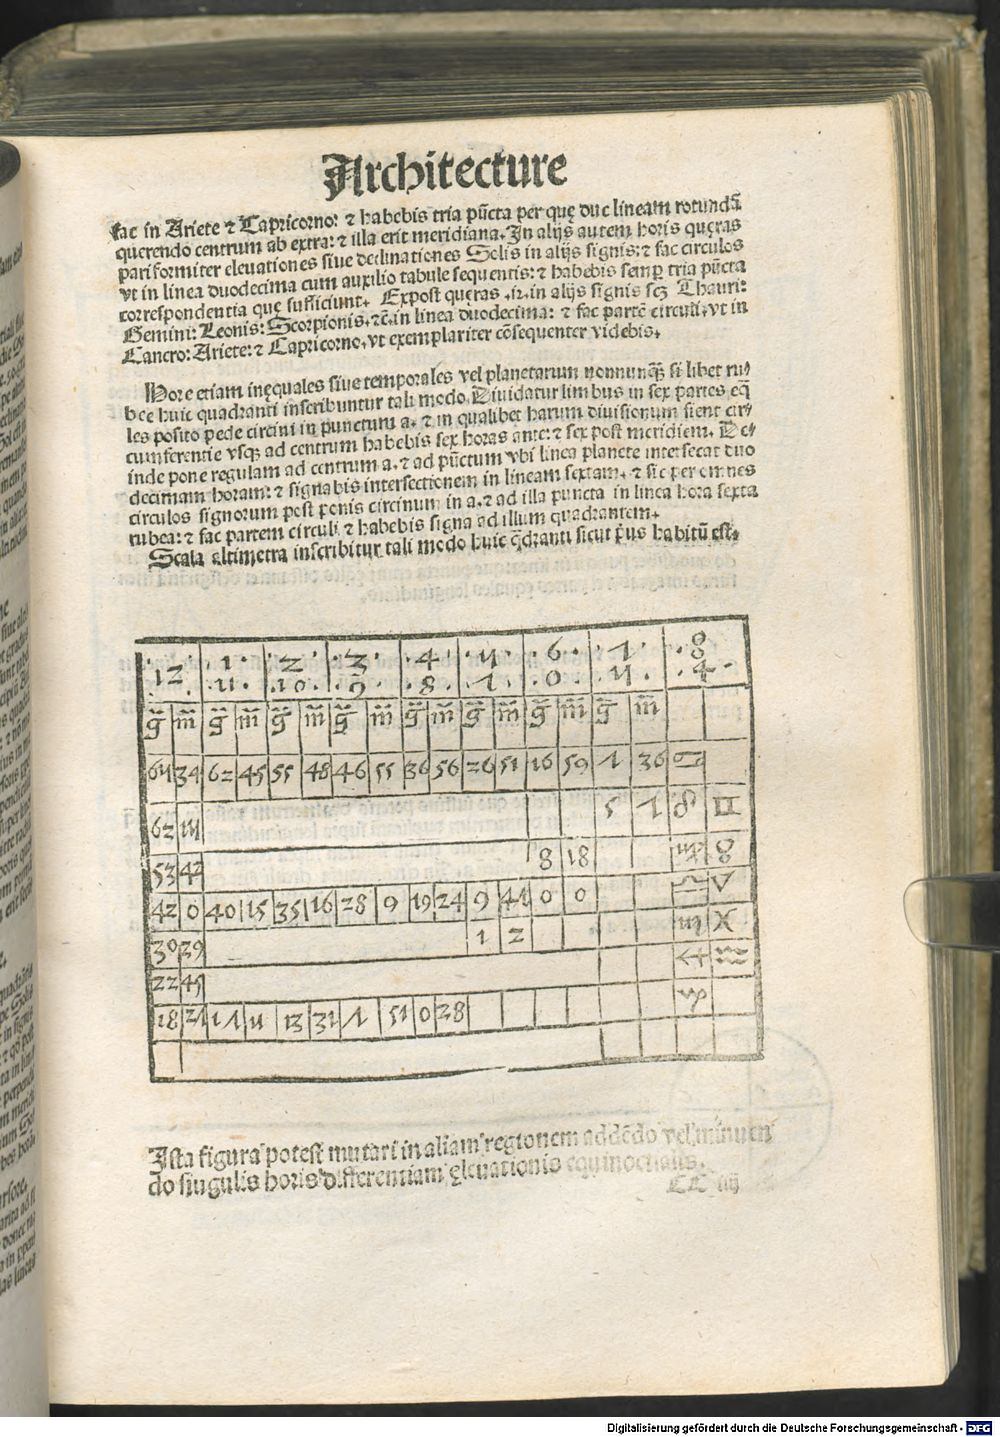 Architecture
fac in Ariete ⁊ Capricorno: ⁊ habebis tria pũcta per quę duc lineam rotundã
querendo centrum ab extra: ⁊ illa erit meridiana. In alijs autem horis quęras
pariformiter eleuationes siue declinationes Solis in alijs signis: ⁊ fac circulos
vt in linea duodecima cum auxilio tabule sequentis: ⁊ habebis semꝑ tria pũcta
correspondentia quę sufficiunt. Expost quęras .12. in alijs signis scꝫ Thauri:
Gemini: Leonis: Scorpionis. ⁊c̃. in linea duodecima: ⁊ fac partẽ circuli, vt in
Cancro: Ariete: ⁊ Capricorno, vt exemplariter cõsequenter videbis.
Hore etiam inęquales siue temporales vel planetarum nonnunq̃ꝫ si libet ru/
bee huic quadranti inscribuntur tali modo. Diuidatur limbus in sex partes eq̃
les posito pede circini in punctum a. ⁊ in qualibet harum diuisionum fient cir/
cumferentie vsqꝫ ad centrum habebis sex horas ante: ⁊ sex post meridiem. De/
inde pone regulam ad centrum a. ⁊ ad pũctum vbi linea planete intersecat duo
decimam horam: ⁊ signabis intersectionem in lineam sextam. ⁊ sic per omnes
circulos signorum post ponis circinum in a. ⁊ ad illa puncta in linea hora sexta
rubea: ⁊ fac partem circuli ⁊ habebis signa ad illum quadrantem.
Scala altimetra inscribitur tali modo huic q̃dranti sicut p̃us habitũ est.
12 1 2 3 4 5 6 7 8
11 10 9 8 7 6 5 4
g̃ m̃ g̃ m̃ g̃ m̃ g̃ m̃ g̃ m̃ g̃ m̃ g̃ m̃ g̃ m̃
65 34 62 45 55 48 46 55 36 56 26 51 16 59 7 36 ♋
62 15 5 7 ♌ ♊
53 42 8 18 ♍ ♉
42 0 40 15 35 16 28 9 19 24 9 47 0 0 ♎ ♈
30 39 1 2 ♏ ♓
22 45 ♐ ♒
18 27 17 11 13 31 7 51 0 28 ♑
Ista figura potest mutari in aliam regionem addẽdo vel minuen
do singulis horis differentiam eleuationis equinoctialis.
CC iiij